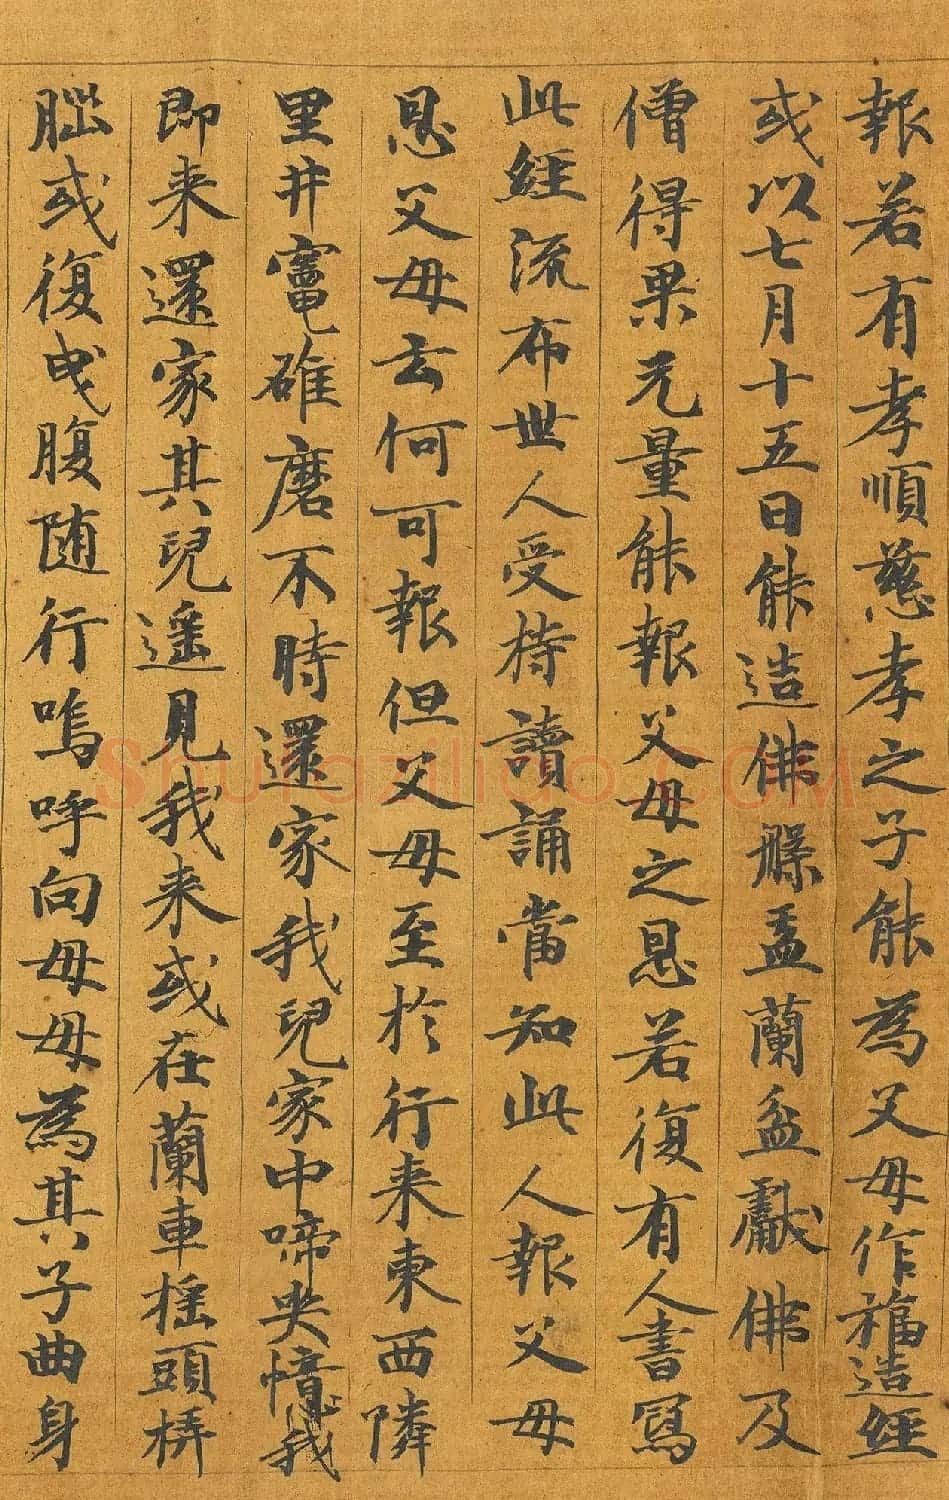 報若有孝順慈孝之子能為父母作福造經
或以七月十五日能造佛槃盂蘭盆獻佛及
僧得果无量能報父母之恩若復有人書寫
此經流布世人受持讀誦當知此人報父母
恩父母云何可報但父母至於行来東西隣
里井竃碓磨不時還家我兒家中啼哭憶我
即来還家其兒遥見我来或在蘭車揺頭㭊
𦛁或復曳腹随行嗚呼向母母為其子曲身
Shufaziliao.COM